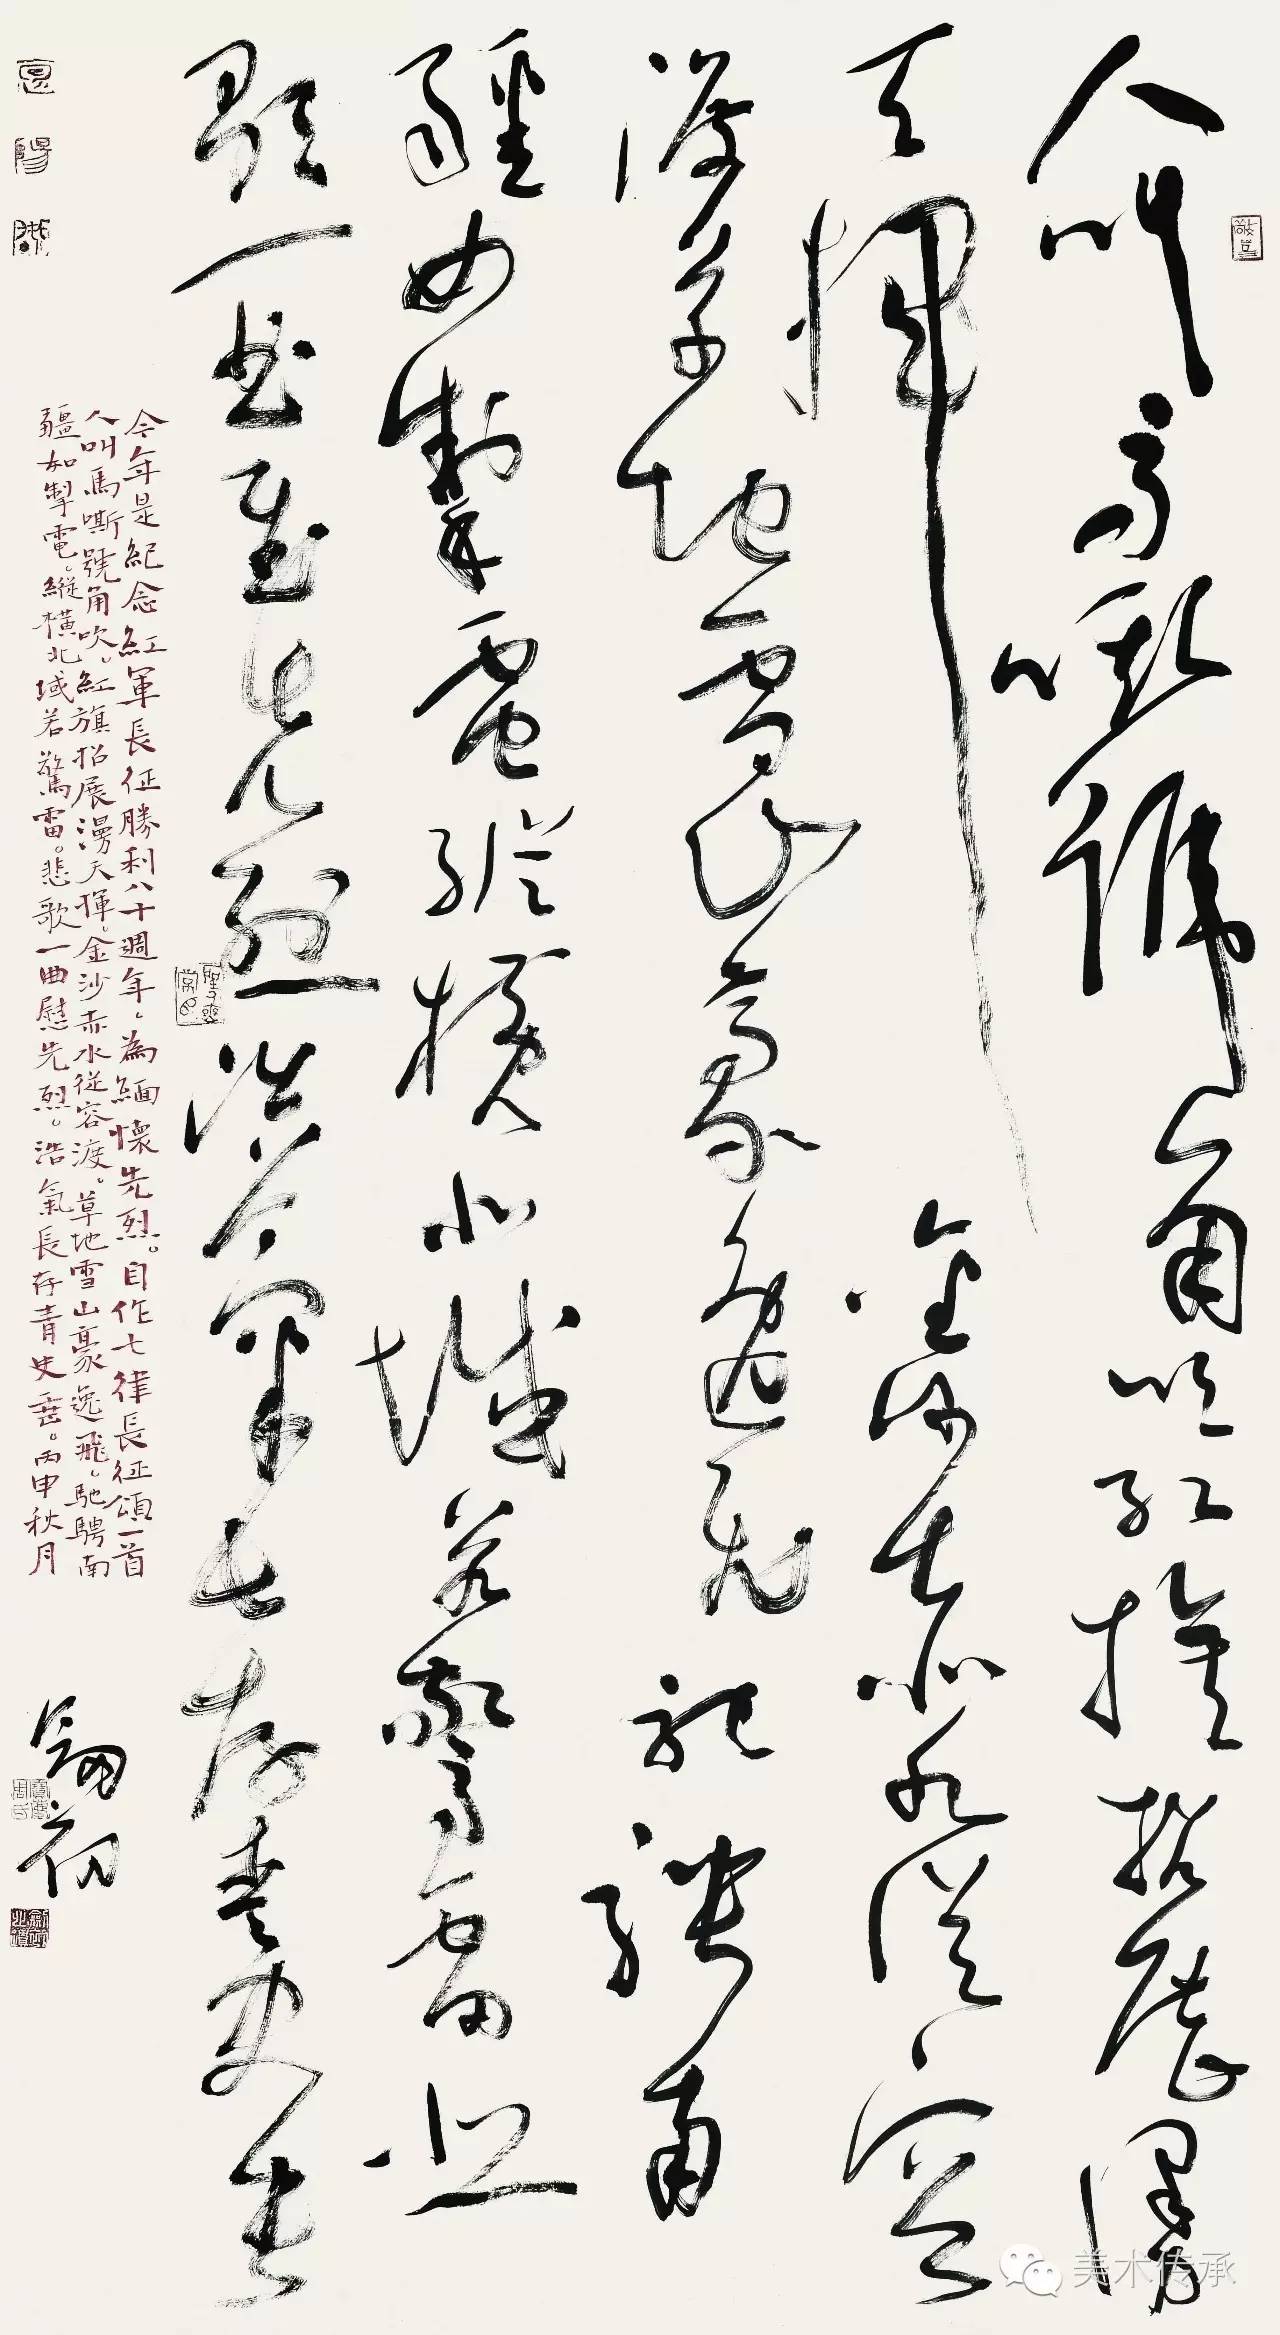 人叫馬嘶號角吹紅旗招展漫
天揮金沙赤水從容
渡草地雪山豪逸飛馳騁南
疆如掣電縱橫北域若驚雷悲
歌一曲慰先烈浩氣長存青史垂
今年是紀念紅軍長征勝利八十週年、為緬懷先烈。自作七律長征頌一首
人叫馬嘶號角吹、紅旗招展漫天揮。金沙赤水從容渡。草地雪山豪逸飛、馳騁南
疆如掣電。縱橫北域若驚雷。悲歌一曲慰先烈。浩氣長存青史垂。丙申秋月
美术传承